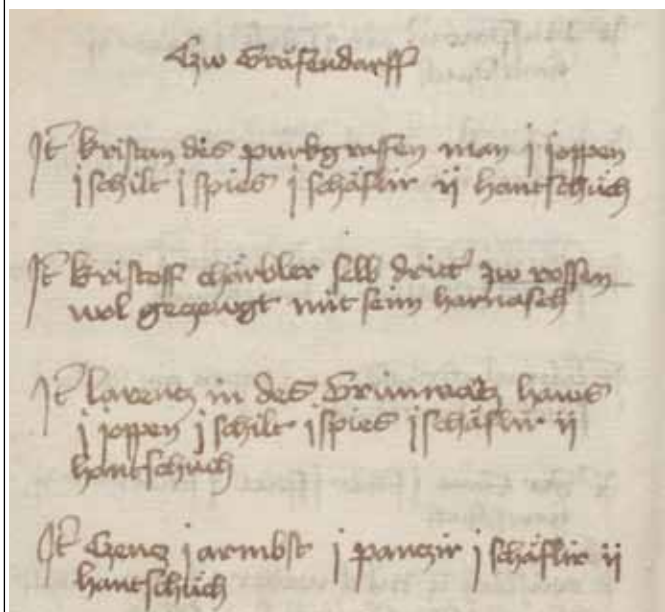 Czw Gräfendarff
It kristan des purkgrafen man j joppen
j schilt j spies j schäflir ij hantschüch
It kristoff chärbler selb dritt zw rossen
wol geczewgt mit seim harnasch
It larencz in des Grünwalcz haws
j joppen j schilt j spies j schäflir ij
hantschüch
It Gencz j armbst j panczir j schäflir ij
hantschüch